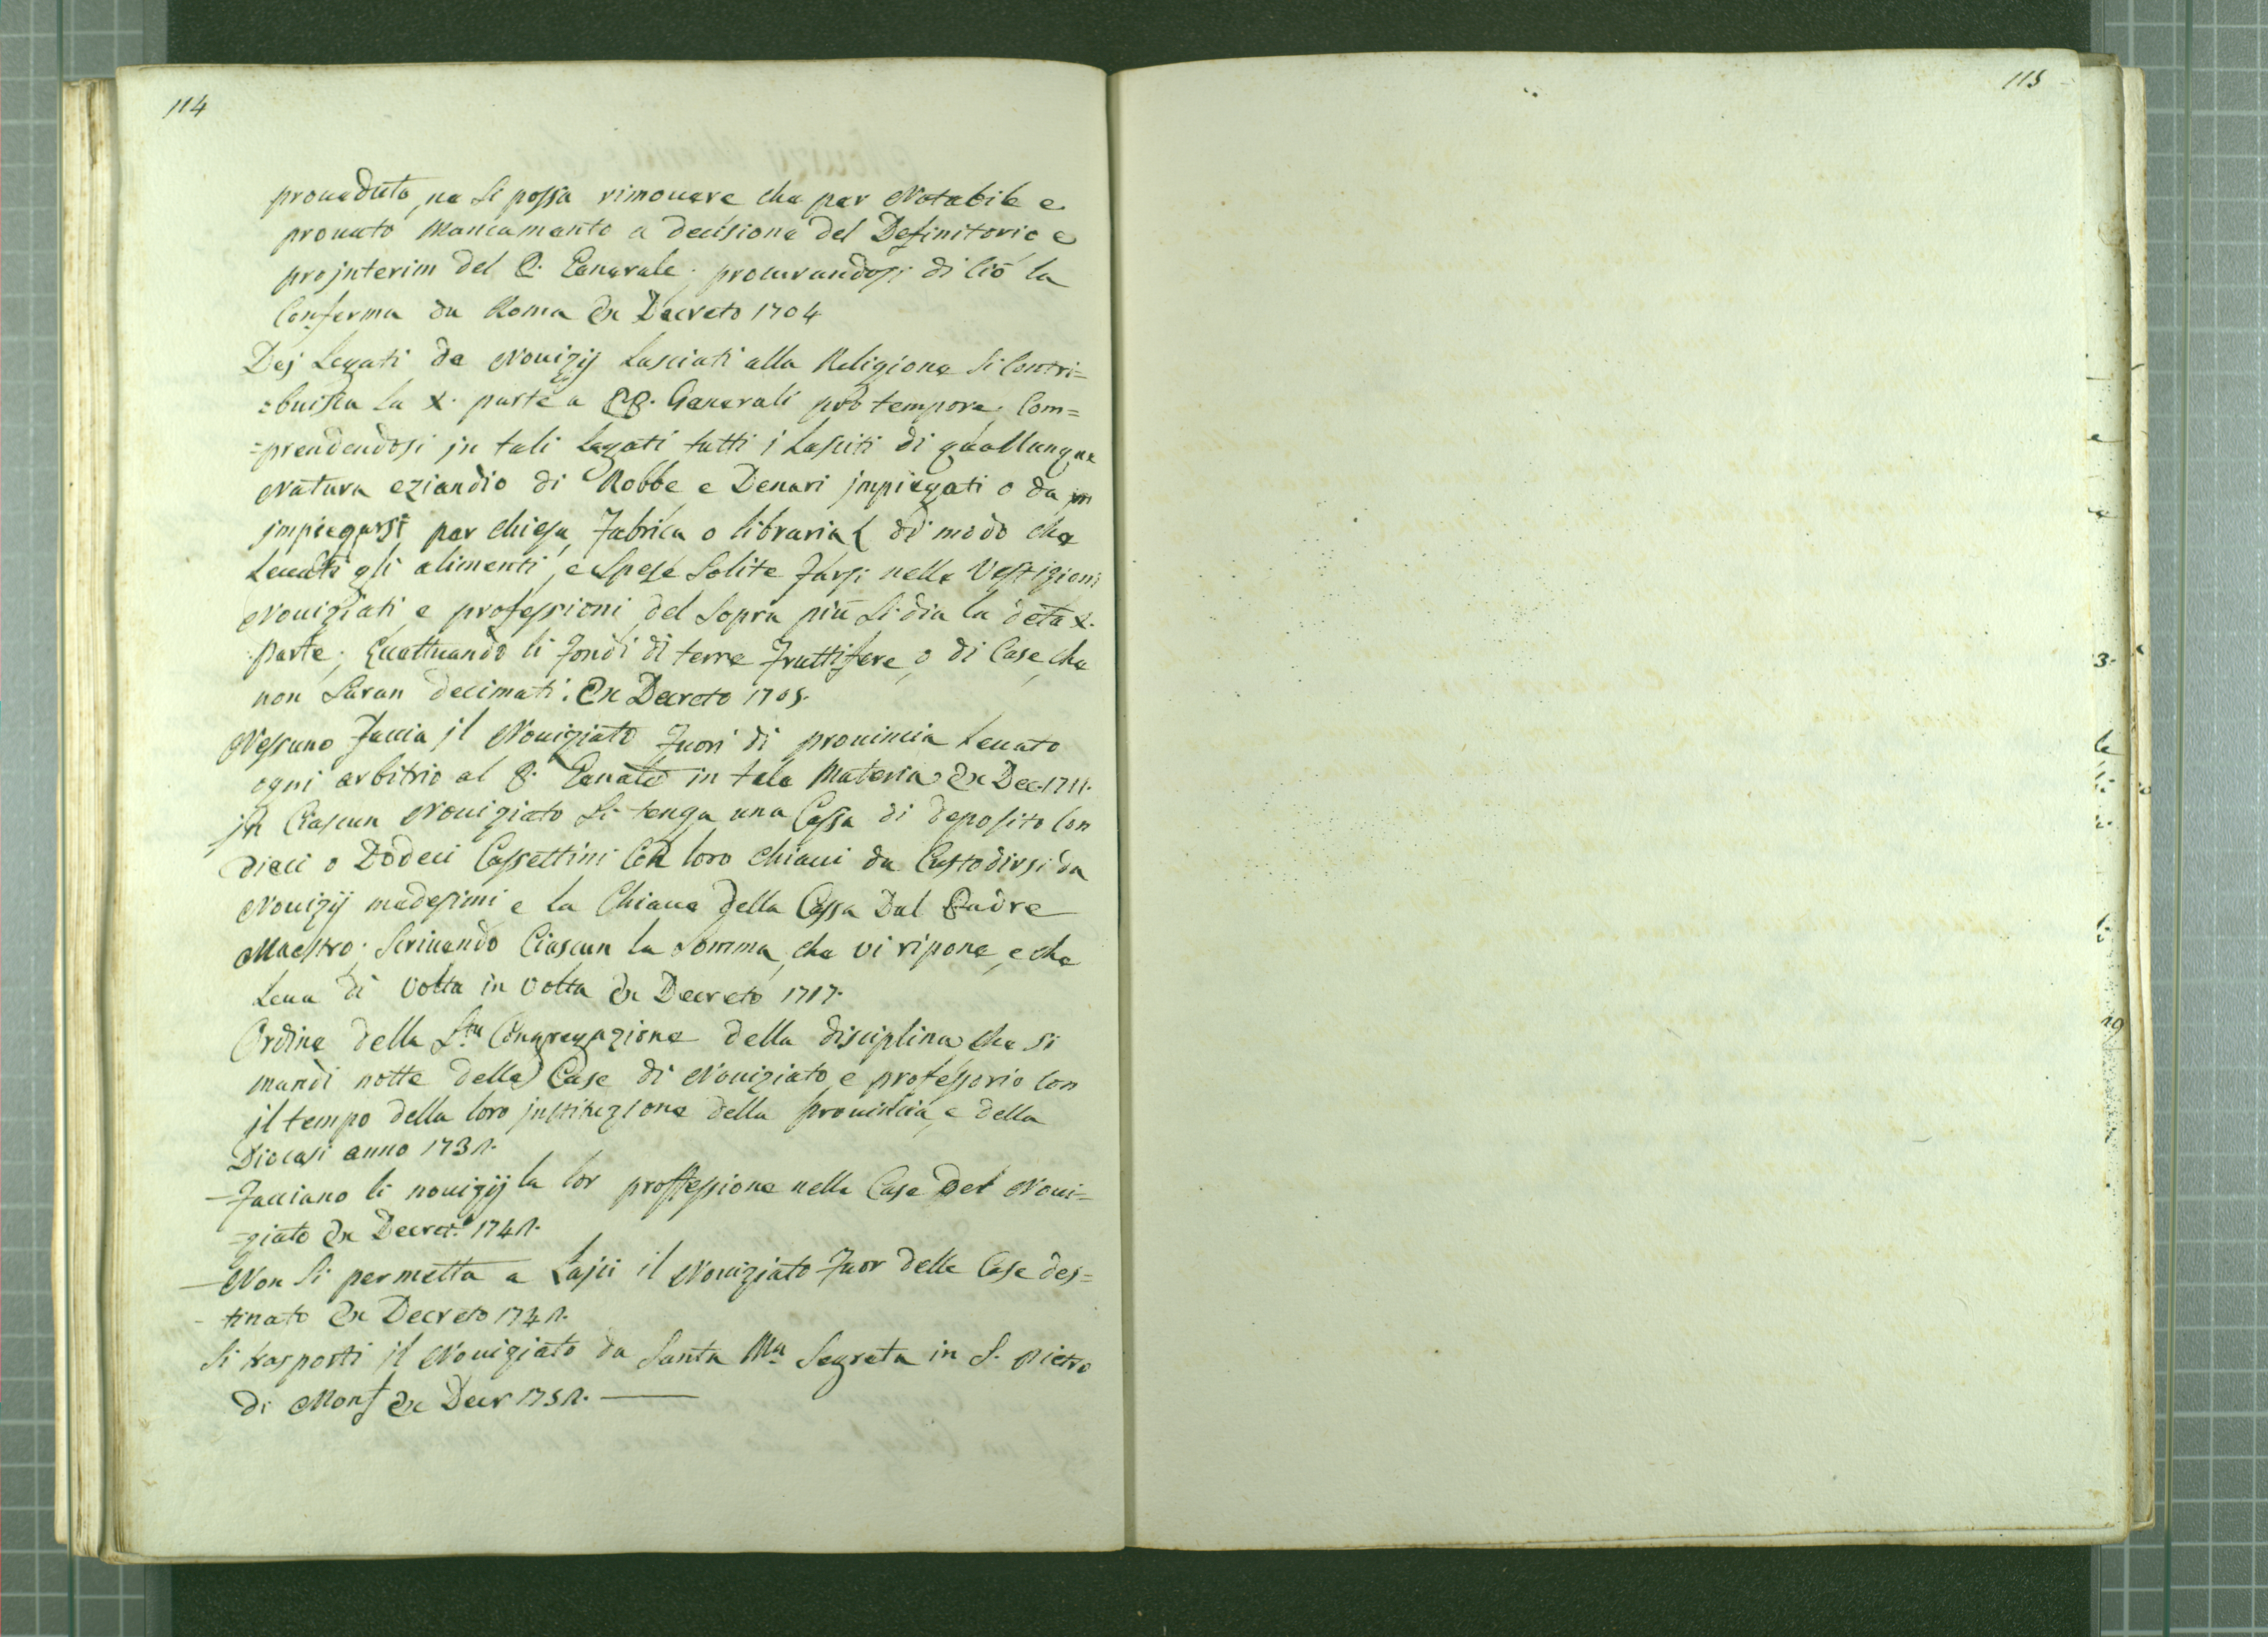 114
proueduto, ne si possa rimouere che per Notabile e
prouato Mancamento a decisione del Definitorio e
projnterim del P. Generale. procurandosi di ciò la
Conferma da Roma Ex Decreto 1704
Dej Legati de Nouizij Lasciati alla Religione si Contri=
=buisca la X. parte a PP. Generali pro tempore. Com=
=prendendosi jn tali Legati tutti i Lasciti di quallunque
Natura eziandio di Robbe e Denari jmpiegati o da
jmpiegarsi per chiesa, Fabrica o libraria di modo che
Leuati gli alimenti, e Spese Solite Farsi nelle Vestizioni
Nouiziati e professioni del Sopra più si dia la deta X.
parte. Eccettuando li Fondi di terre Fruttifere, o di Case, che
non Saran decimati. Ex Decreto 1705.
Nessuno Faccia jl Nouiziato Fuori di prouincia Leuato
ogni arbitrio al P. Genale in tale Materia Ex Dec. 1711.
jn Ciascun Nouiziato si tenga una Cassa di deposito Con
dieci o Dodeci Cassettini Con loro chiaui da Custodirsi da
Nouizij medesimi e la Chiaue della Cassa Dal Padre
Maestro. Scriuendo Ciascun la Somma, che vi ripone, e che
Leua di volta in volta Ex Decreto 1717.
Ordine della S.ta Congregazione della disciplina che si
mandi notte delle Case di Nouiziato, e professorio con
il tempo della loro jnstituzione della prouincia, e della
Diocesi anno 1731.
-Facciano li nouizij la lor proffessione nelle Case del Noui=
=ziato Ex Decret.o 1741.
-Non si permetta a Lajci il Nouiziato Fuor delle Case des=
-tinate Ex Decreto 1741.
Si trasporti jl Nouiziato da Santa Ma Segreta in S. pietro
di Monf Ex Decr 1751.
115